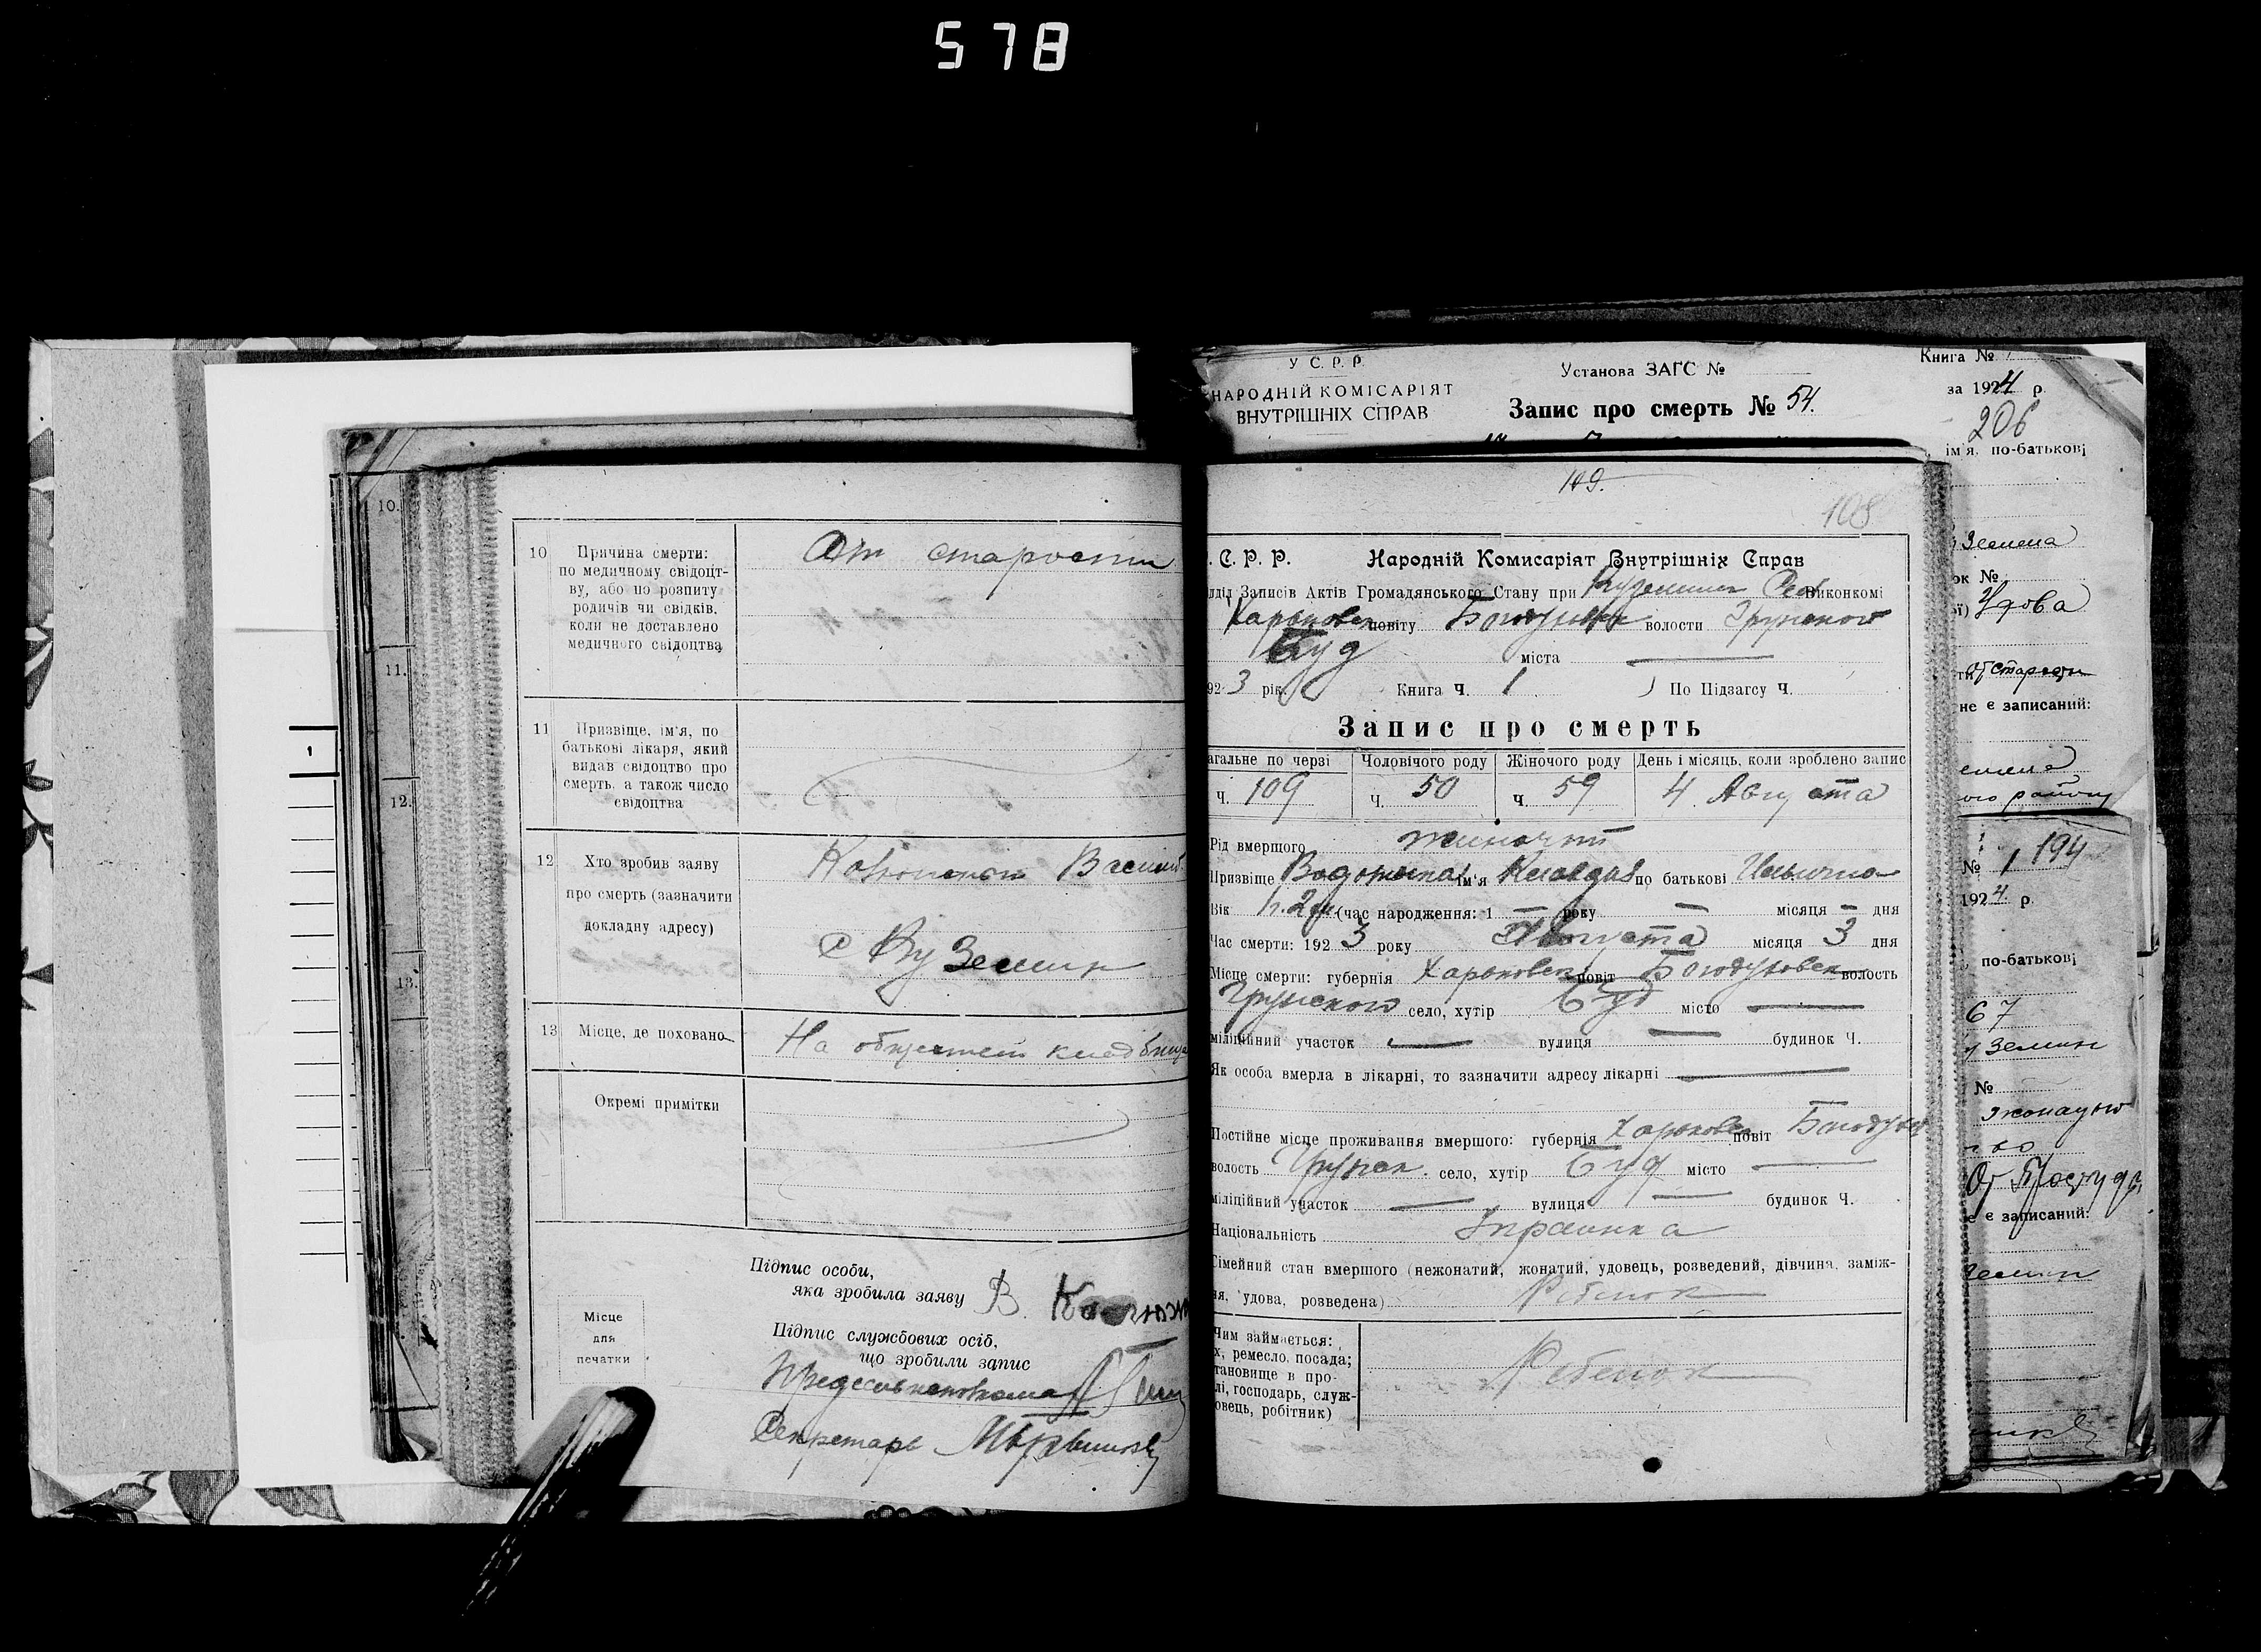 578
10.
11.
12.
13.
1
10 Причина смерти:
по медичному свідоцт-
ву, або по розпиту
родичів чи свідків,
коли не доставлено
медичного свідоцтва
От старости
11 Призвіще, ім'я, по
батькові лікаря, який
видав свідоцтво про
смерть, а також число
свідоцтва
12 Хто зробив заяву
про смерть (зазначити
докладну адресу)
с Кузeмин
13 Місце, де поховано
На общественн кладбище
Окремі примітки
Підпис особи,
яка зробила заяву В.
Місце
для
печатки
Підпис службових осіб,
що зробили запис
Предсельисполкома
Секретарь
У С. Р. Р.
НАРОДНІЙ КОМІСАРІЯТ
ВНУТРІШНІХ СПРАВ
Установа ЗАГС №
Запис про смерть № 54.
Книга №
за 1924 р.
206
ім'я, по-батькові
109.
108
. С. Р. Р. Народній Комисаріят Внутрішніх Справ
дділ Записів Актів Громадянського Стану при Куземин Сель Виконкомі
Харьковск повіту Богодухов волости Грунского
Буд міста —
92 3 рік Книга Ч. 1 По Підзагсу Ч.
Запис про смерть
агальне по черзі Чоловічого роду Жіночого роду День і місяць, коли зроблено запис
Ч. 109 Ч. 50 Ч. 59 4 Августа
Рід вмершого жиночий
Призвіще Ім'я Клавдия по батькові Ильична
Вік (час народження: 1 — року — місяця — дня
Час смерти: 192 3 року Августа місяця 3 дня
Місце смерти: губернія Харьковск повіт Богодуховск волость
Грунского село, хутір Буд місто —
міліційний участок — вулиця — будинок Ч.
Як особа вмерла в лікарні, то зазначити адресу лікарні —
Постійне місце проживання вмершого: губернія Харьковск повіт Богодухов
волость Грунск. село, хутір Буд місто —
міліційний участок — вулиця — будинок Ч.
Національність Украинка
Сімейний стан вмершого (нежонатий, жонатий, удовець, розведений, дівчина, заміж-
ня, удова, розведена) Ребенок
Чим займається:
х, ремесло, посада;
тановище в про-
лі, господарь, служ-
овець, робітник)
Ребенок
ок №
Удова
От старости
не є записаний:
ого району
№ 1 194
1924 р.
по-батькові
67
№
От Простуды
є записаний: